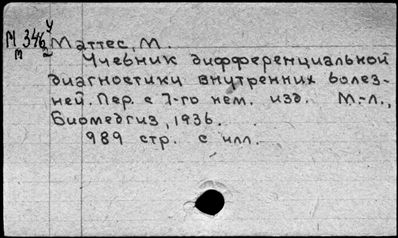 М 346 У
м 2
Маттес, М.
Учебник дифференциальной
диагностики внутренних болез-
ней. Пер. с 7-го нем. изд. М.-Л.,
Биомедгиз, 1936.
989 стр. с илл.